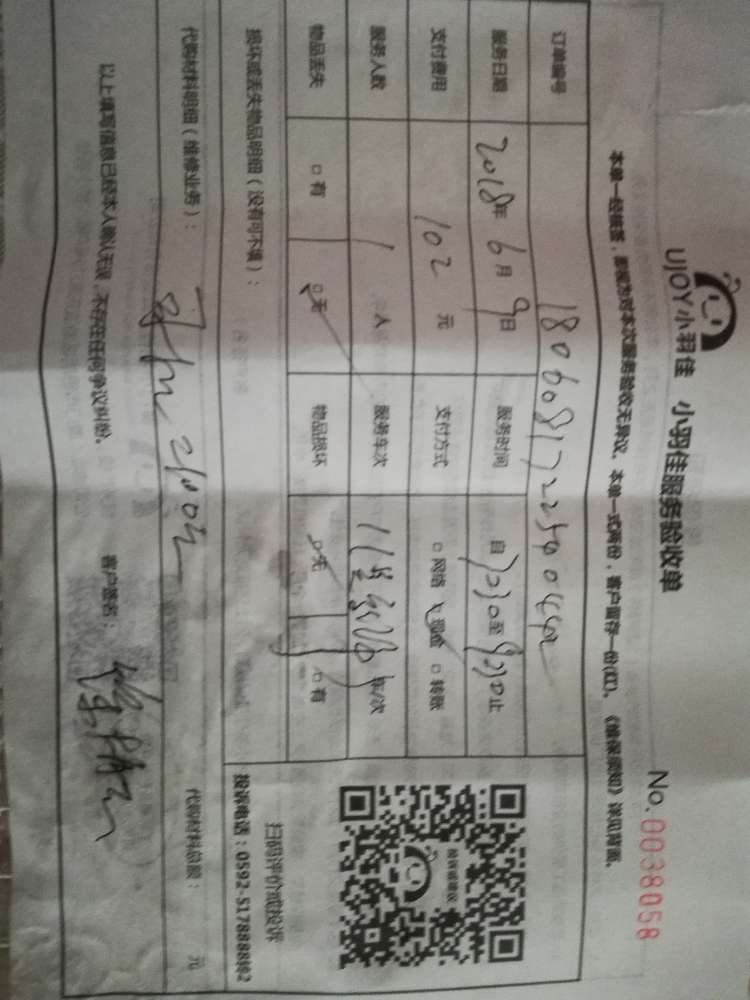 UJOY小羽佳 小羽佳服务验收单
No.0038058
本单一经接签,即视为对本次服务验收无异议。本单一式两份,客户留存一份(红)。《维保须知》详见背面。
订单编号
服务日期 2018年6月9日 服务时间 自 至 止
支付费用 102元 支付方式 □网络 □现金 □转账
服务人数 1人 服务车次 车/次
物品丢失 □有 □无 物品损坏 □无 □有
损坏或丢失物品明细(没有可不填):
代购材料明细(维修业务): 代购材料总额: 元
以上填写信息已经本人确认无误,不存在任何争议纠纷。 客户签名:
投诉或建议
扫码评价或投诉
投诉电话:0592-5178888转2